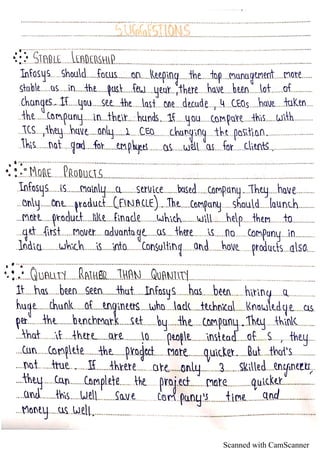 SUGGESTIONS
STABLE LEADERSHIP
Infosys should focus on keeping the top management more
stable as in the past few year, there have been lot of
changes. If you see the last one decade, 4 CEOs have taken
the company in their hands. If you compare this with
TCS, they have only 1 CEO changing the position.
This not good for employees as well as for clients.
MORE PRODUCTS
Infosys is mainly a service based company. They have
only one product (FINACLE). The company should launch
more product like finacle which will help them to
get first mover advantage as there is no company in
India which is into consulting and have products also.
QUALITY RATHER THAN QUANTITY
It has been seen that Infosys has been hiring a
huge chunk of engineers who lack technical knowledge as
per the benchmark set by the company. They think
that if there are 10 people instead of 5, they
can complete the project more quicker. But that's
not true. If threre are only 3 skilled engineers,
they can complete the project more quicker
and this well save company's time and
money as well.
Scanned with CamScanner